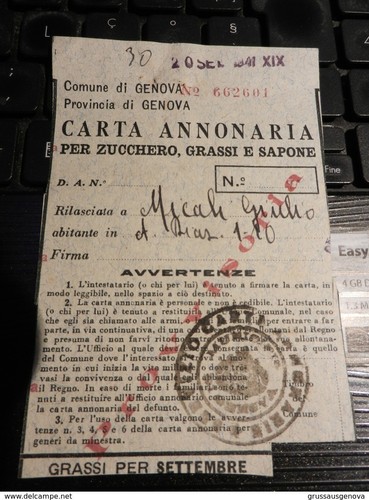 30 20 SET. 1941 XIX
Comune di GENOVA Nº 662601
Provincia di GENOVA
CARTA ANNONARIA
PER ZUCCHERO, GRASSI E SAPONE
D. A. N.º
N.º
Rilasciata a Micali Giulio
abitante in
Firma
Provvisoria
AVVERTENZE
1. L'intestatario (o chi per lui) è tenuto a firmare la carta, in
modo leggibile, nello spazio a ciò destinato.
2. La carta annonaria è personale e non è cedibile. L'intestatario
(o chi per lui) è tenuto a restituirla all'Ufficio comunale, nel caso
che egli sia chiamato alle armi, per entrare a far
parte, in via continuativa, di una dal Regno
e presuma di non farvi ritorno allontana-
mento. L'Ufficio al quale dov consegnata la carta è quello
del Comune dove l'interessato
mento in cui inizia la vi dove tra-
vasi la convivenza o da abbandona
il Regno. In caso di morte i familiari sono te-
nuti a restituire all'Ufficio annonario comunale
la carta annonaria del defunto.
3. Per l'uso della carta valgono le avver-
tenze n. 3, 4, 5 e 6 della carta annonaria per
generi da minestra.
Timbro
del
Comune
GRASSI PER SETTEMBRE
Easy
4 GB D
1.3 M
www.delcampe.net
proudstaugenova